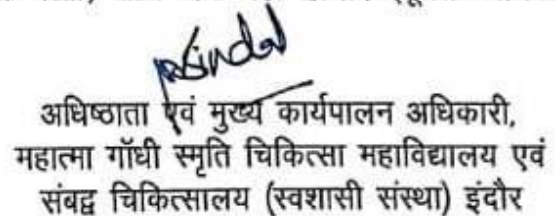 अधिष्ठाता एवं मुख्य कार्यपालन अधिकारी,
महात्मा गॉधी स्मृति चिकित्सा महाविद्यालय एवं
संबद्व चिकित्सालय (स्वशासी संस्था) इंदौर